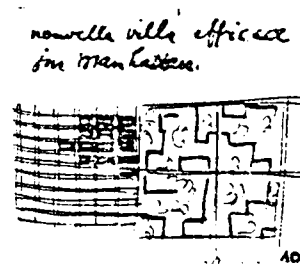 nouvelle ville efficace
sur Manhattan.